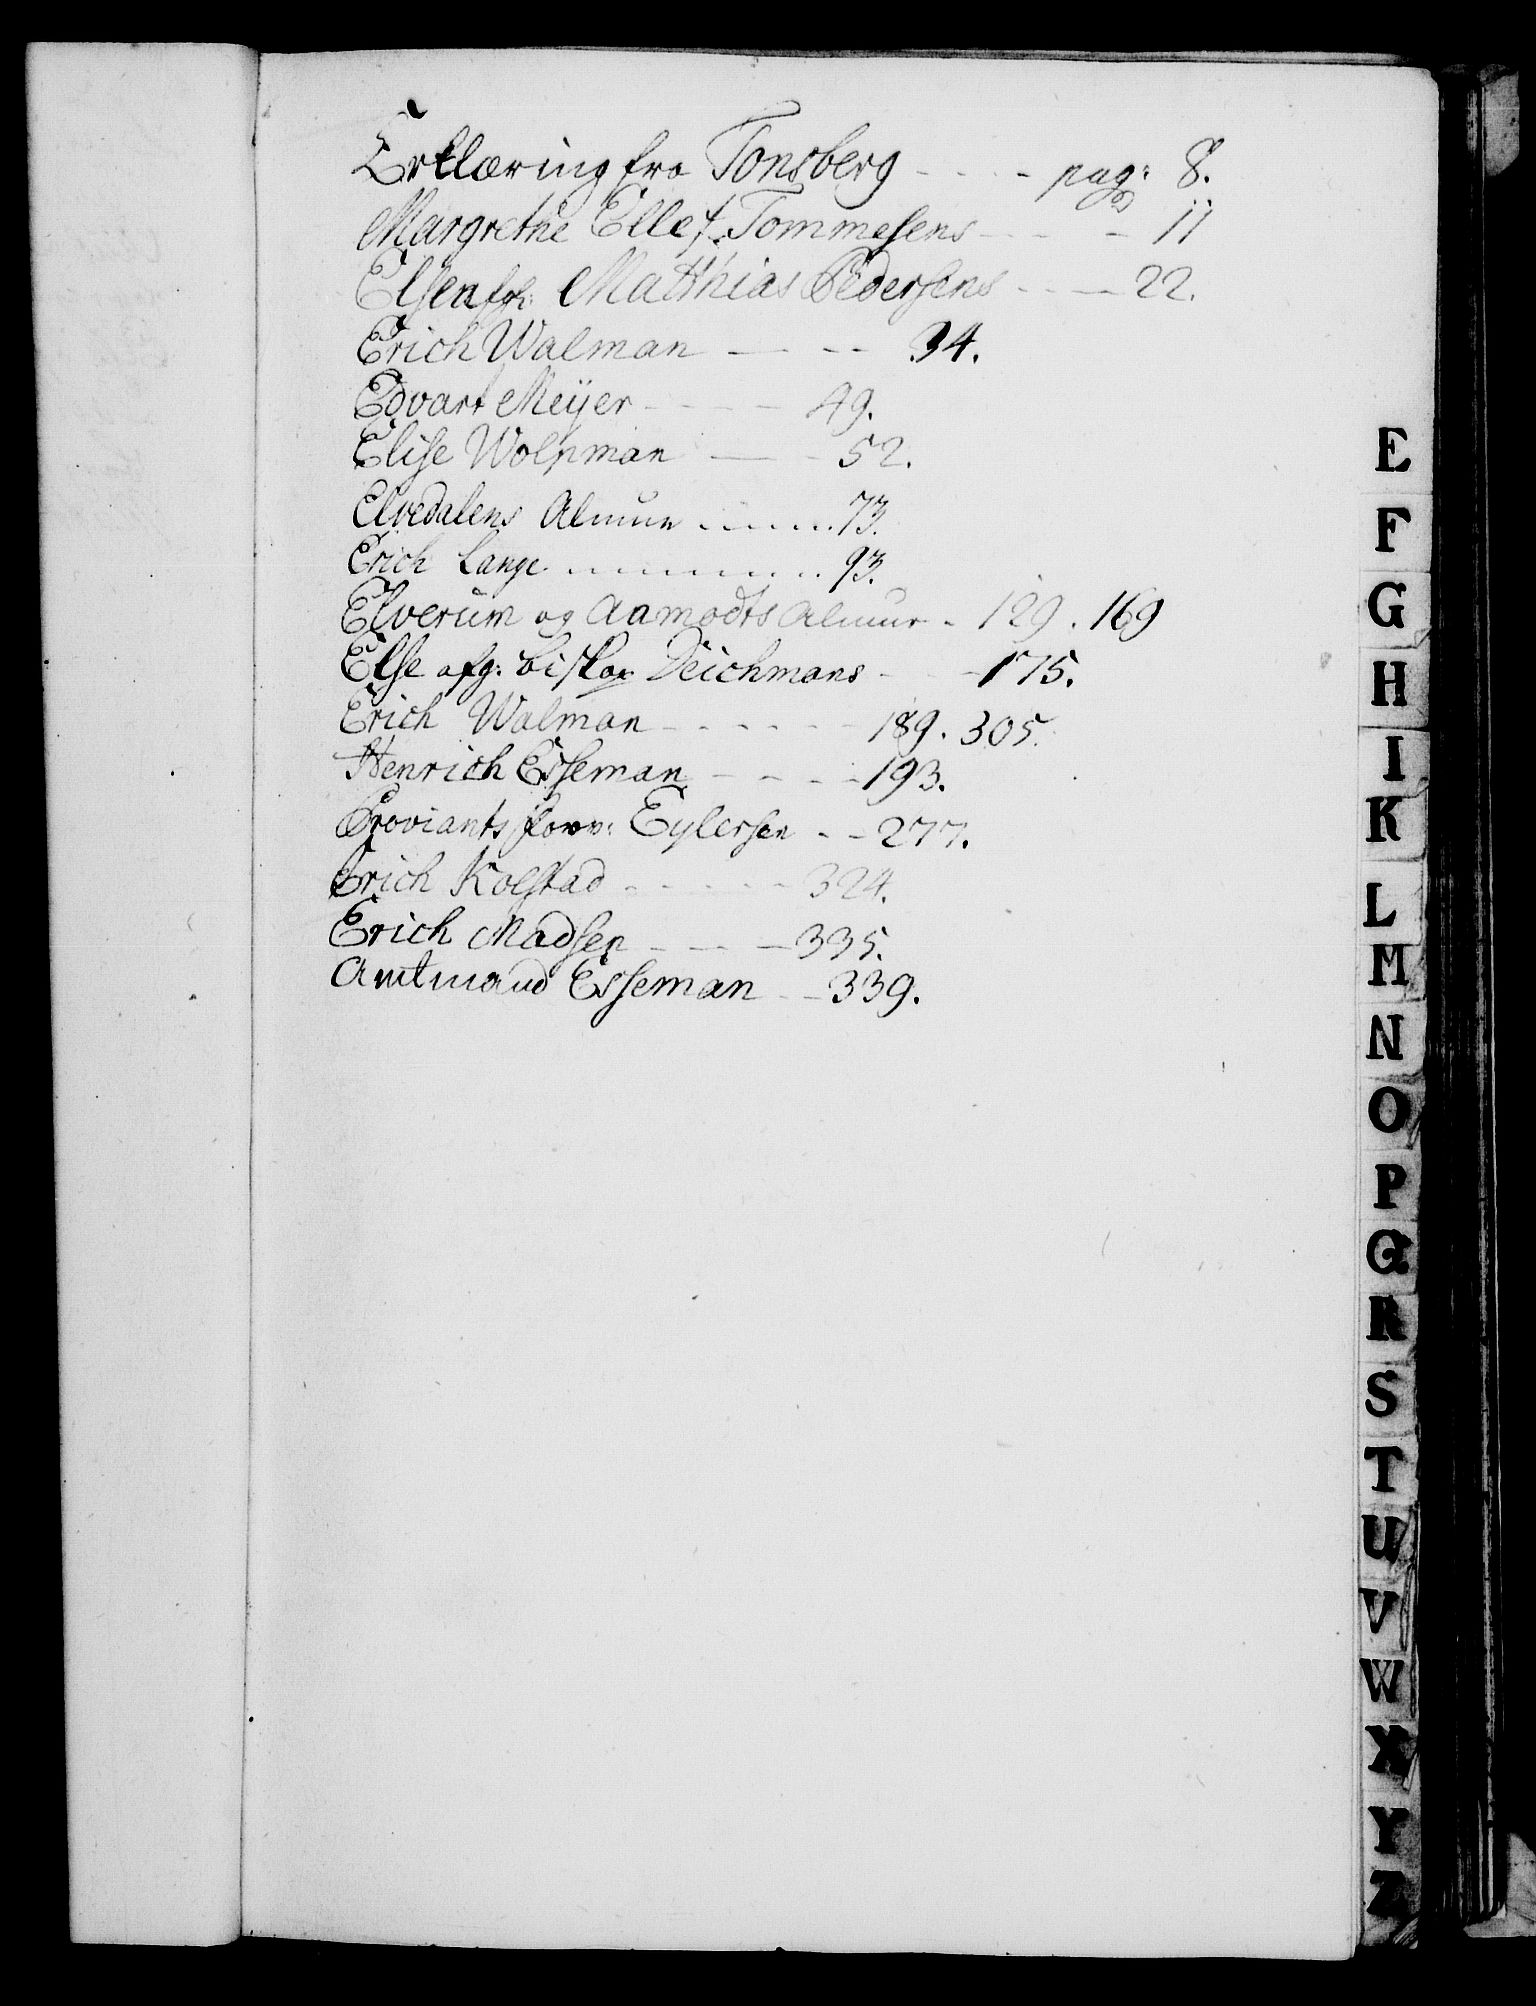 Erklæring fra Tonsberg - - - - pag: 8.
Margrethe Ellef. Tommesens - - - 11
Elsen afg: Matthias Pedersens - - - 22.
Erich Walman - - - 34.
Edvart Meÿer - - - - 49.
Elise Wolpman - - 52.
Elvedalens Almue ....... 73.
Erich Lange .......... 93.
Elverum og Aamodts Almue - 129 . 169
Else afg: biskop Deichmans - - 175.
Erich Walman - - - - - 189. 305.
Henrich Esseman - - - - 193.
Proviantsforv: Eylersen - - 277.
Erich Kolstad - - - - - 324.
Erich Madsen - - - 335.
Amtmand Esseman - - 339.
E
F
G
H
I
K
L
M
N
O
P
Q
R
S
T
U
V
W
X
Y
Z